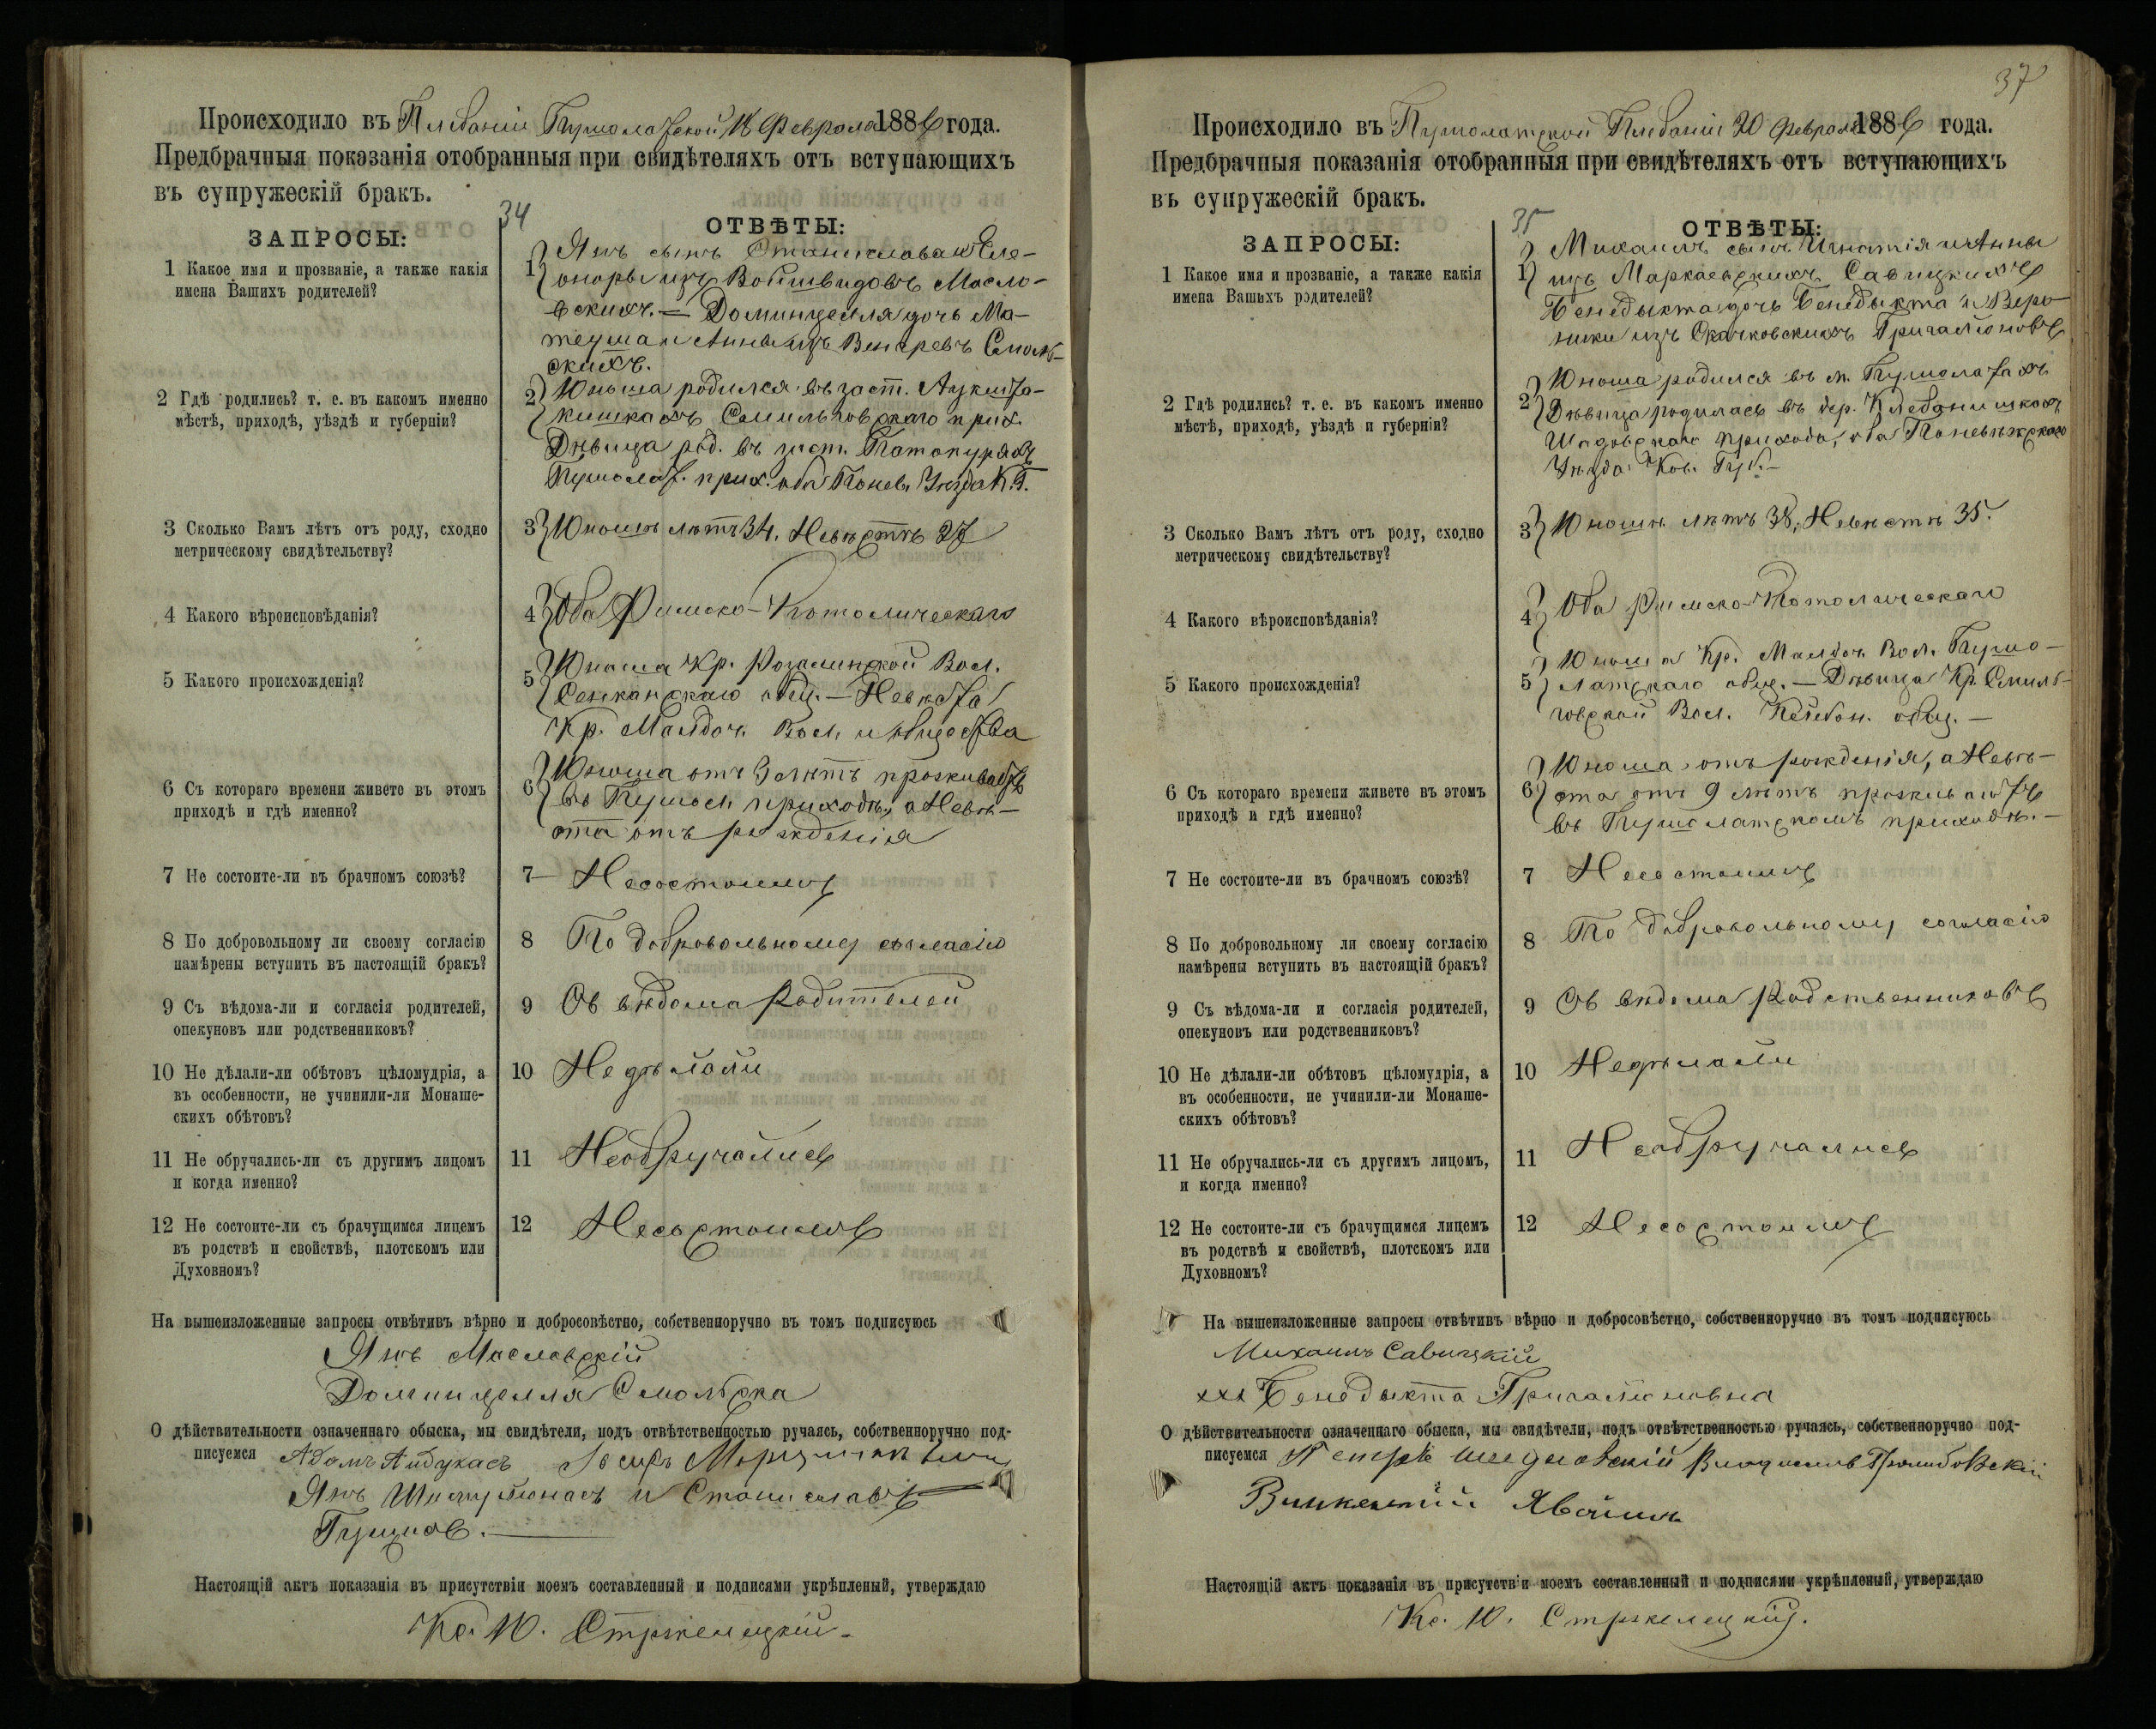 Происходило въ Плебаніи Пушолатской 18 Февраля 1886 года.
Предбрачныя показанія отобранныя при свидѣтеляхъ отъ вступающихъ
въ супружескій бракъ.
34
ЗАПРОСЫ:
ОТВѢТЫ:
1 Какое имя и прозваніе, а также какія
имена Вашихъ родителей?
1 Янъ сынъ Станислава и Еле-
оноры изъ Войшвидовъ Масло-
вскихъ. — Доминцелля дочь Ма-
теуша и Анны изъ Венгревъ Смоль-
скихъ.
2 Гдѣ родились? т. е. въ какомъ именно
мѣстѣ, приходѣ, уѣздѣ и губерніи?
2 Юноша родился въ заст.
кишкахъ Смильговскаго прих.
Дѣвица род. въ заст.
Пушолат. прих. оба Понев. Уѣзда К. Г.
3 Сколько Вамъ лѣтъ отъ роду, сходно
метрическому свидѣтельству?
3 Юношѣ лѣтъ 34, Невѣстѣ 27
4 Какого вѣроисповѣданія?
4 Оба Римско-Католическаго
5 Какого происхожденія?
5 Юноша Кр. Розалинской Вол.
Сенканскаго общ. — Невѣста
Кр. Малдоч. Вол. и общества
6 Съ котораго времени живете въ этомъ
приходѣ и гдѣ именно?
6 Юноша отъ 3 лѣтъ проживаетъ
въ Пушол. приходѣ, а Невѣ-
ста отъ рожденія
7 Не состоите-ли въ брачномъ союзѣ?
7 — Несостоимъ
8 По добровольному ли своему согласію
намѣрены вступить въ настоящій бракъ?
8 По добровольному согласію
9 Съ вѣдома-ли и согласія родителей,
опекуновъ или родственниковъ?
9 Съ вѣдома Родителей
10 Не дѣлали-ли обѣтовъ цѣломудрія, а
въ особенности, не учинили-ли Монаше-
скихъ обѣтовъ?
10 Недѣлали
11 Не обручались-ли съ другимъ лицомъ
и когда именно?
11 Необручались
12 Не состоите-ли съ брачущимся лицемъ
въ родствѣ и свойствѣ, плотскомъ или
Духовномъ?
12 Несостоимъ
На вышеизложенные запросы отвѣтивъ вѣрно и добросовѣстно, собственноручно въ томъ подписуюсь
Янъ Масловскій
Доминцелля Смольска
О дѣйствительности означеннаго обыска, мы свидѣтели, подъ отвѣтственностью ручаясь, собственноручно под-
писуемся Адамъ Айдукасъ Іосифъ
Янъ и Станиславъ
Настоящій актъ показанія въ присутствіи моемъ составленный и подписями укрѣпленый, утверждаю
Кс. Ю. Стржелецкій.
37
Происходило въ Пушолатской Плебаніи 20 Февраля 1886 года.
Предбрачныя показанія отобранныя при свидѣтеляхъ отъ вступающихъ
въ супружескій бракъ.
35
ЗАПРОСЫ:
ОТВѢТЫ:
1 Какое имя и прозваніе, а также какія
имена Вашихъ родителей?
1 Михаилъ сынъ Игнатія и Анны
изъ Маркаевскихъ Савицкихъ
Бенедыкта дочь Бенедыкта и Веро-
ники изъ Скачковскихъ Григаліоновъ
2 Гдѣ родились? т. е. въ какомъ именно
мѣстѣ, приходѣ, уѣздѣ и губерніи?
2 Юноша родился въ м. Пушолатахъ
Дѣвица родилась въ дер. Клебанишкахъ
Шадовскаго прихода, оба Поневѣжскаго
Уѣзда Ков. Губ. —
3 Сколько Вамъ лѣтъ отъ роду, сходно
метрическому свидѣтельству?
3 Юношѣ лѣтъ 38, Невѣстѣ 35.
4 Какого вѣроисповѣданія?
4 Оба Римско-Католическаго
5 Какого происхожденія?
5 Юноша Кр. Малдоч. Вол. Пушо-
латскаго общ. — Дѣвица Кр. Смиль-
говской Вол. общ. —
6 Съ котораго времени живете въ этомъ
приходѣ и гдѣ именно?
6 Юноша отъ рожденія, а Невѣ-
ста отъ 9 лѣтъ проживаютъ
въ Пушолатскомъ приходѣ. —
7 Не состоите-ли въ брачномъ союзѣ?
7 Несостоимъ
8 По добровольному ли своему согласію
намѣрены вступить въ настоящій бракъ?
8 По добровольному согласію
9 Съ вѣдома-ли и согласія родителей,
опекуновъ или родственниковъ?
9 Съ вѣдома Родственниковъ
10 Не дѣлали-ли обѣтовъ цѣломудрія, а
въ особенности, не учинили-ли Монаше-
скихъ обѣтовъ?
10 Недѣлали
11 Не обручались-ли съ другимъ лицомъ,
и когда именно?
11 Необручались
12 Не состоите-ли съ брачущимся лицемъ
въ родствѣ и свойствѣ, плотскомъ или
Духовномъ?
12 Несостоимъ
На вышеизложенные запросы отвѣтивъ вѣрно и добросовѣстно, собственноручно въ томъ подписуюсь
Михаилъ Савицкій
ххх Бенедыкта Григаліоновна
О дѣйствительности означеннаго обыска, мы свидѣтели, подъ отвѣтственностью ручаясь, собственноручно под-
писуемся Петръ
Викентій
Настоящій актъ показанія въ присутствіи моемъ составленный и подписями укрѣпленый, утверждаю
Кс. Ю. Стржелецкій.